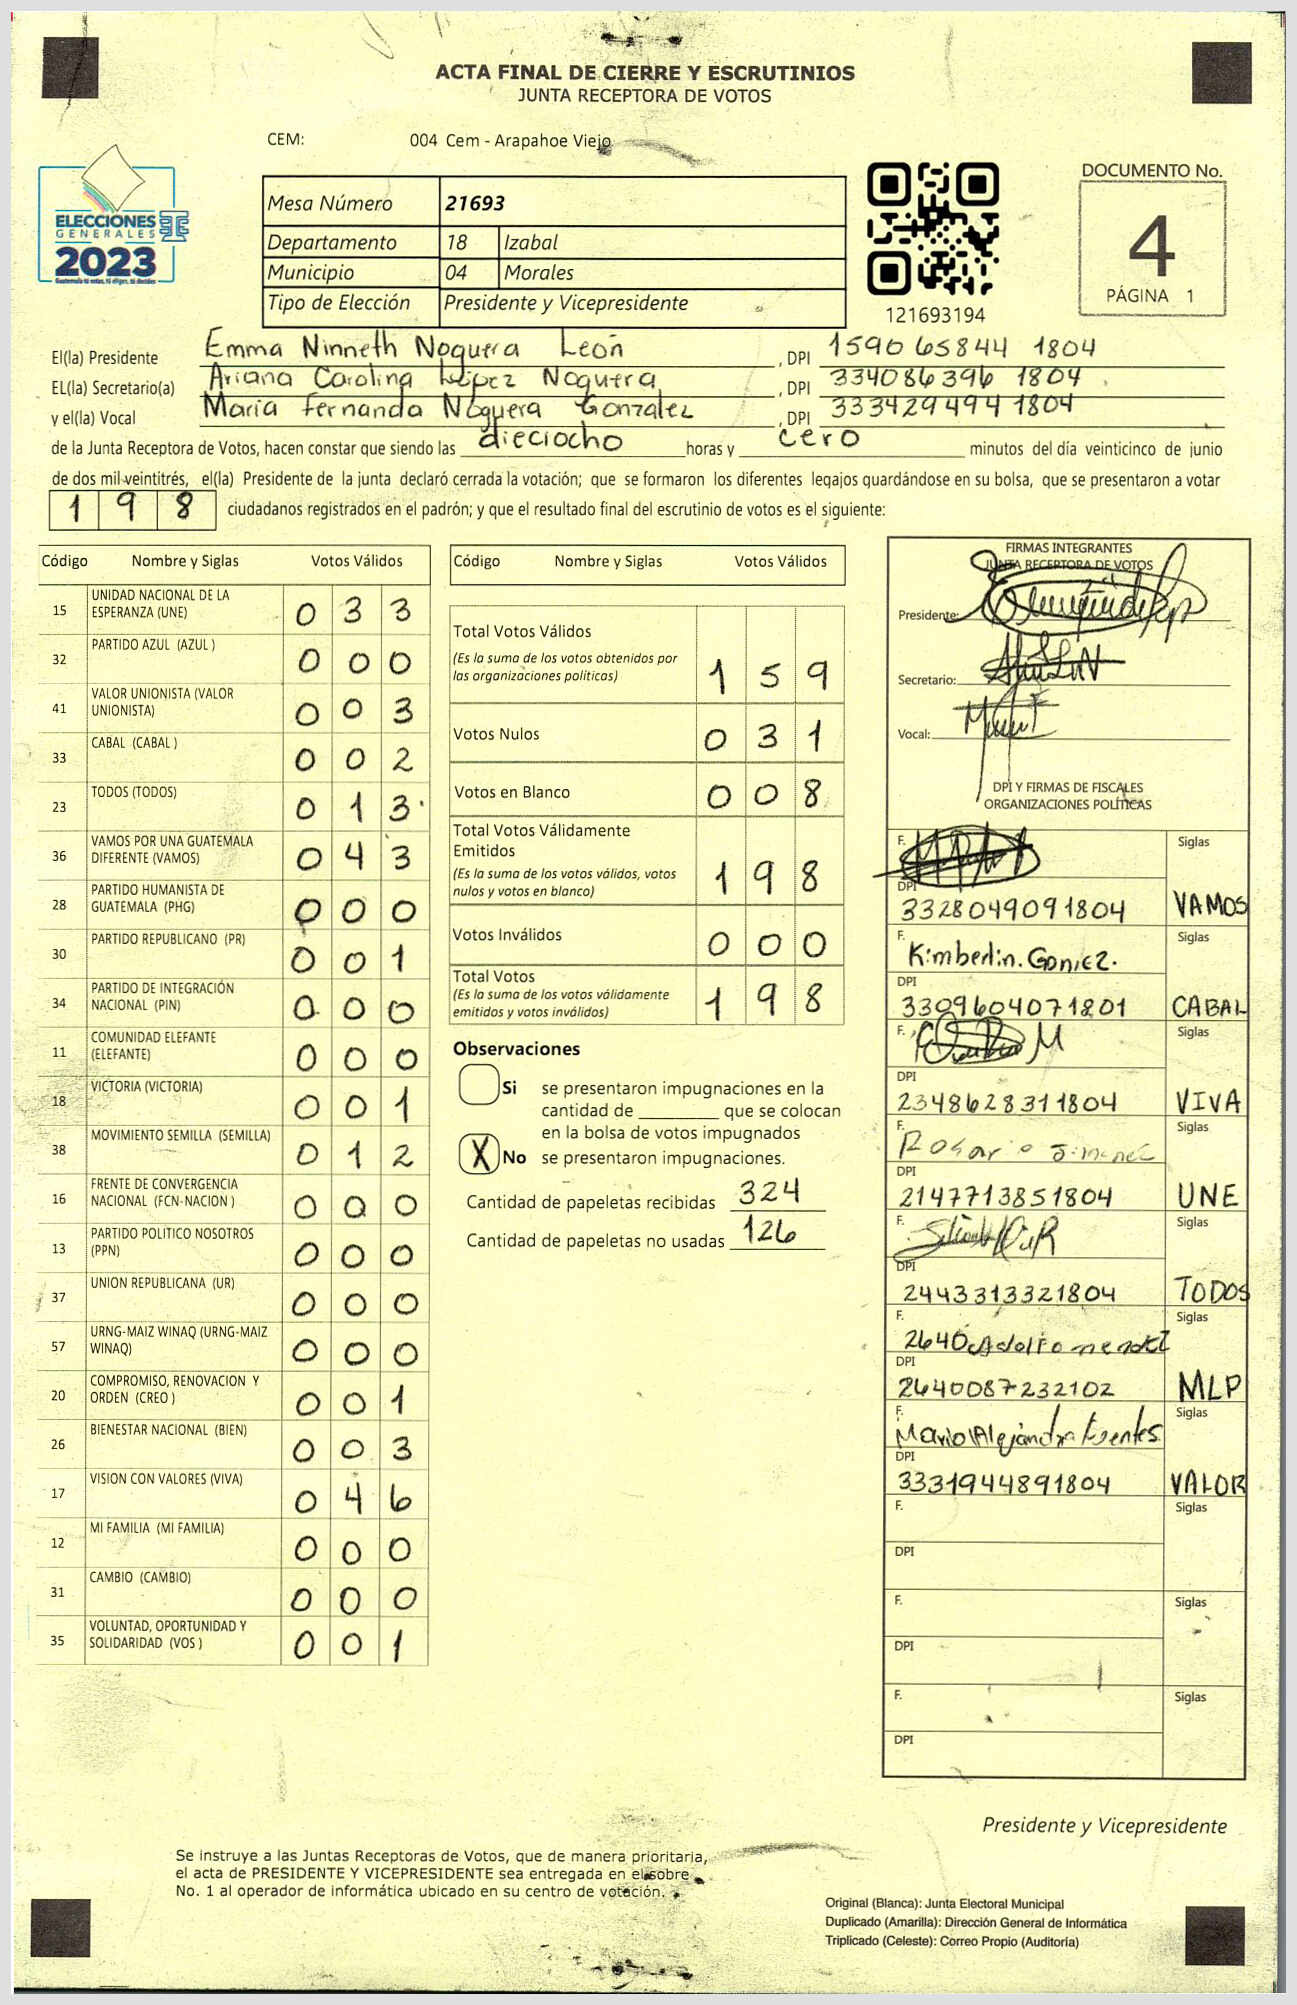 ACTA FINAL DE CIERRE Y ESCRUTINIOS
JUNTA RECEPTORA DE VOTOS
CEM: 004 Cem - Arapahoe Viejo
ELECCIONES
GENERALES
2023
Guatemala tú votas, tú eliges, tú decides
Mesa Número 21693
Departamento 18 Izabal
Municipio 04 Morales
Tipo de Elección Presidente y Vicepresidente
121693194
DOCUMENTO No.
4
PÁGINA 1
El(la) Presidente Emma Ninneth Noguera León , DPI 1590 65844 1804
EL(la) Secretario(a) Ariana Carolina López Noguera , DPI 334086396 1804
y el(la) Vocal María Fernanda Noguera Gonzalez , DPI 333429494 1804
de la Junta Receptora de Votos, hacen constar que siendo las dieciocho horas y cero minutos del día veinticinco de junio
de dos mil veintitrés, el(la) Presidente de la junta declaró cerrada la votación; que se formaron los diferentes legajos guardándose en su bolsa, que se presentaron a votar
198 ciudadanos registrados en el padrón; y que el resultado final del escrutinio de votos es el siguiente:
Código Nombre y Siglas Votos Válidos
15 UNIDAD NACIONAL DE LA ESPERANZA (UNE) 033
32 PARTIDO AZUL (AZUL ) 000
41 VALOR UNIONISTA (VALOR UNIONISTA) 003
33 CABAL (CABAL ) 002
23 TODOS (TODOS) 013
36 VAMOS POR UNA GUATEMALA DIFERENTE (VAMOS) 043
28 PARTIDO HUMANISTA DE GUATEMALA (PHG) 000
30 PARTIDO REPUBLICANO (PR) 001
34 PARTIDO DE INTEGRACIÓN NACIONAL (PIN) 000
11 COMUNIDAD ELEFANTE (ELEFANTE) 000
18 VICTORIA (VICTORIA) 001
38 MOVIMIENTO SEMILLA (SEMILLA) 012
16 FRENTE DE CONVERGENCIA NACIONAL (FCN-NACION ) 000
13 PARTIDO POLITICO NOSOTROS (PPN) 000
37 UNION REPUBLICANA (UR) 000
57 URNG-MAIZ WINAQ (URNG-MAIZ WINAQ) 000
20 COMPROMISO, RENOVACION Y ORDEN (CREO ) 001
26 BIENESTAR NACIONAL (BIEN) 003
17 VISION CON VALORES (VIVA) 046
12 MI FAMILIA (MI FAMILIA) 000
31 CAMBIO (CAMBIO) 000
35 VOLUNTAD, OPORTUNIDAD Y SOLIDARIDAD (VOS ) 001
Código Nombre y Siglas Votos Válidos
Total Votos Válidos 159
(Es la suma de los votos obtenidos por
las organizaciones políticas)
Votos Nulos 031
Votos en Blanco 008
Total Votos Válidamente
Emitidos 198
(Es la suma de los votos válidos, votos
nulos y votos en blanco)
Votos Inválidos 000
Total Votos 198
(Es la suma de los votos válidamente
emitidos y votos inválidos)
Observaciones
Si se presentaron impugnaciones en la
cantidad de ________ que se colocan
en la bolsa de votos impugnados
X No se presentaron impugnaciones.
Cantidad de papeletas recibidas 324
Cantidad de papeletas no usadas 126
FIRMAS INTEGRANTES
JUNTA RECEPTORA DE VOTOS
Presidente:
Secretario:
Vocal:
DPI Y FIRMAS DE FISCALES
ORGANIZACIONES POLÍTICAS
F. Siglas
DPI
3328049091804 VAMOS
F. Kimberlin. Gomez. Siglas
DPI
3309604071801 CABAL
F. Siglas
DPI
2348628311804 VIVA
F. Rosario Jimenez Siglas
DPI
2147713851804 UNE
F. Siglas
DPI
2443313321804 TODOS
F. 2640 Adolfo mendez Siglas
DPI
2640087232102 MLP
F. Mario Alejandra Fuentes Siglas
DPI
3331944891804 VALOR
F. Siglas
DPI
F. Siglas
DPI
F. Siglas
DPI
Presidente y Vicepresidente
Se instruye a las Juntas Receptoras de Votos, que de manera prioritaria,
el acta de PRESIDENTE Y VICEPRESIDENTE sea entregada en el sobre
No. 1 al operador de informática ubicado en su centro de votación.
Original (Blanca): Junta Electoral Municipal
Duplicado (Amarilla): Dirección General de Informática
Triplicado (Celeste): Correo Propio (Auditoría)